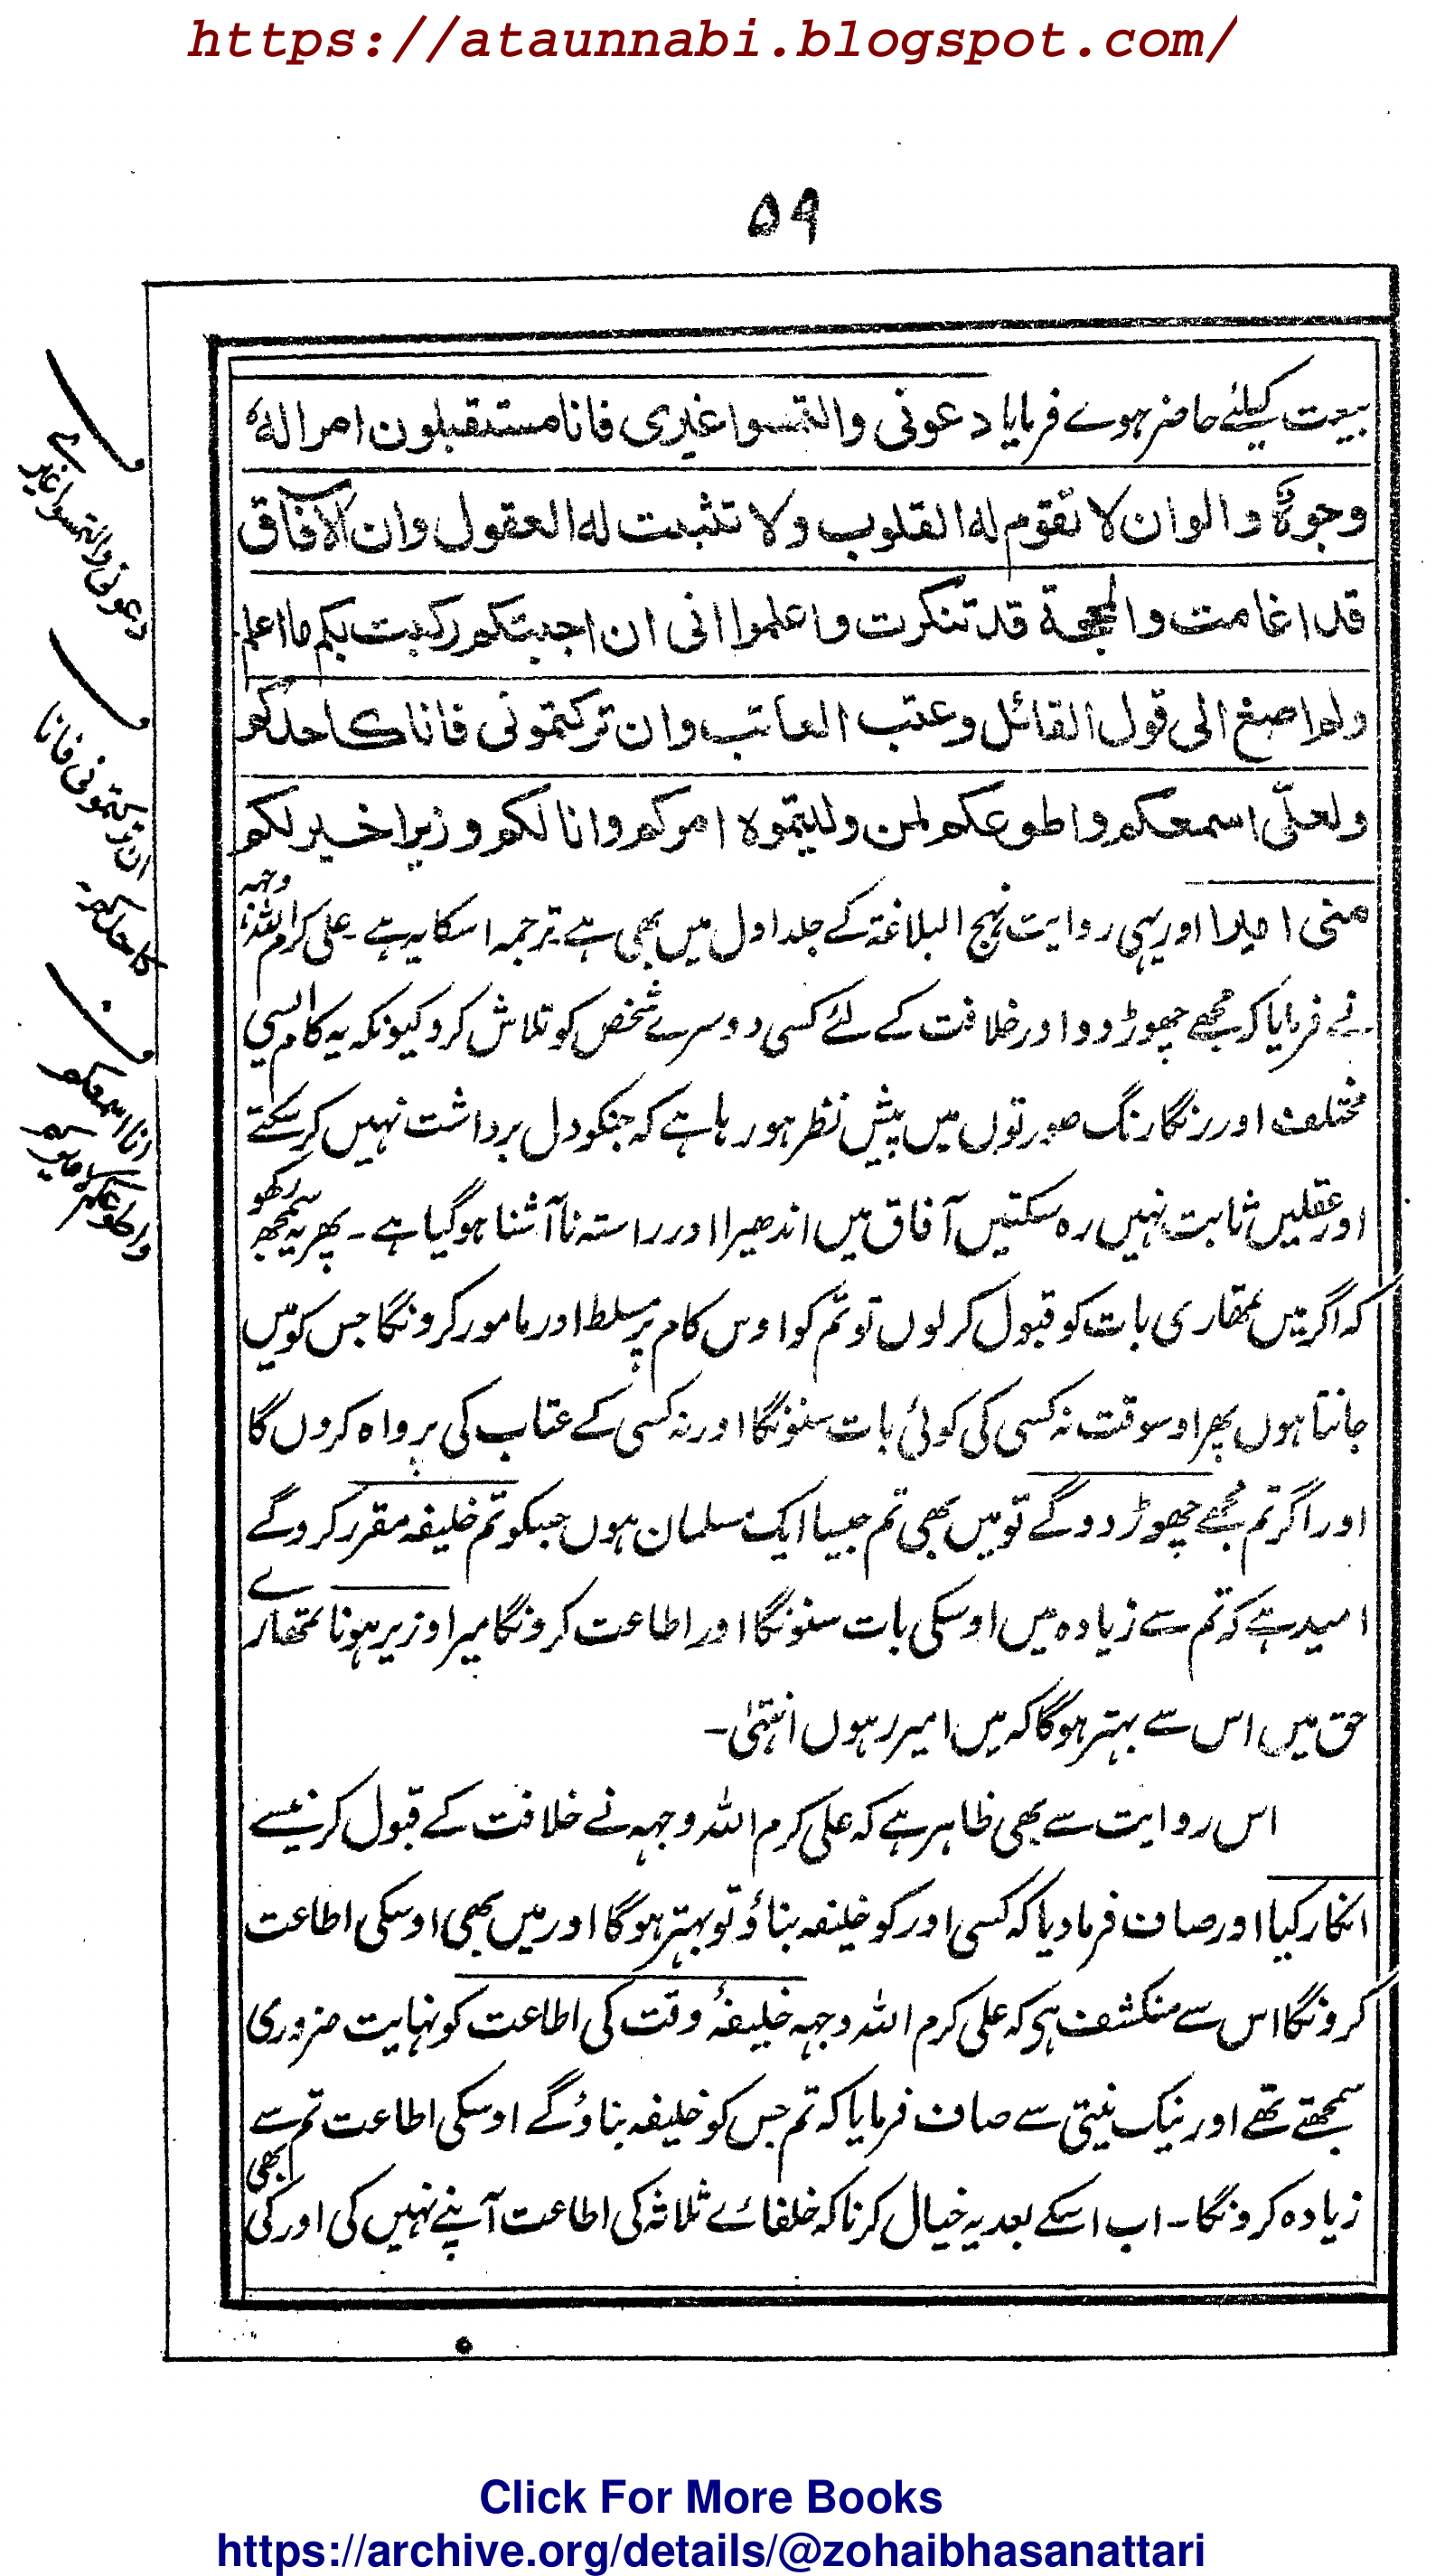 https://ataunnabi.blogspot.com/
۵۹
بیعت کیلئے حاضر ہوے فرمایا دعونی والتمسوا غیری فانا مستقبلون امرا لہٗ
وجوہٌ والوان لا تقوم لہ القلوب ولا تثبت لہ العقول وان الآفاق
قد اغامت والمحجۃ قد تنکرت واعلموا انی ان اجبتکم رکبت بکم ما اعلم
ولم اصغ الی قول القائل وعتب العاتب وان ترکتمونی فانا کاحدکم
ولعلّی اسمعکم واطوعکم لمن ولیتموہ امرکم وانا لکم وزیرا خیر لکم
منی امیرا اور یہی روایت نہج البلاغۃ کے جلد اول میں بھی ہے ۔ ترجمہ اسکا یہ ہے ۔ علی کرم اللہ وجہہ
نے فرمایا کہ مجھے چھوڑ دو اور خلافت کے لئے کسی دوسرے شخص کو تلاش کرو کیونکہ یہ کام ایسی
مختلف اور رنگارنگ صورتوں میں پیش نظر ہو رہا ہے کہ جنکو دل برداشت نہیں کر سکتے
اور عقلیں ثابت نہیں رہ سکتیں آفاق میں اندھیرا اور راستہ نا آشنا ہوگیا ہے ۔ پھر یہ سمجھ رکھو
کہ اگر میں تمھاری بات کو قبول کر لوں تو تم کو اوس کام پر مسلط اور مامور کرونگا جس کو میں
جانتا ہوں پھر اوسوقت نہ کسی کی کوئی بات سنونگا اور نہ کسی کے عتاب کی پرواہ کروں گا
اور اگر تم مجھے چھوڑ دوگے تو میں بھی تم جیسا ایک مسلمان ہوں جسکو تم خلیفہ مقرر کروگے
امید ہے کہ تم سے زیادہ میں اوسکی بات سنونگا اور اطاعت کرونگا میرا وزیر ہونا تمھارے
حق میں اس سے بہتر ہوگا کہ میں امیر رہوں انتہیٰ۔
اس روایت سے بھی ظاہر ہے کہ علی کرم اللہ وجہہ نے خلافت کے قبول کرنیسے
انکار کیا اور صاف فرمادیا کہ کسی اور کو خلیفہ بناؤ تو بہتر ہوگا اور میں بھی اوسکی اطاعت
کرونگا اس سے منکشف ہی کہ علی کرم اللہ وجہہ خلیفۂ وقت کی اطاعت کو نہایت ضروری
سمجھتے تھے اور نیک نیتی سے صاف فرمایا کہ تم جس کو خلیفہ بناؤگے اوسکی اطاعت تم سے
زیادہ کرونگا ۔ اب اسکے بعد یہ خیال کرنا کہ خلفاے ثلاثہ کی اطاعت آپنے نہیں کی اور کی بھی
دعونی والتمسوا غیری
ان ترکتمونی فانا
کاحدکم
انا اسمعکم
واطوعکم
Click For More Books
https://archive.org/details/@zohaibhasanattari